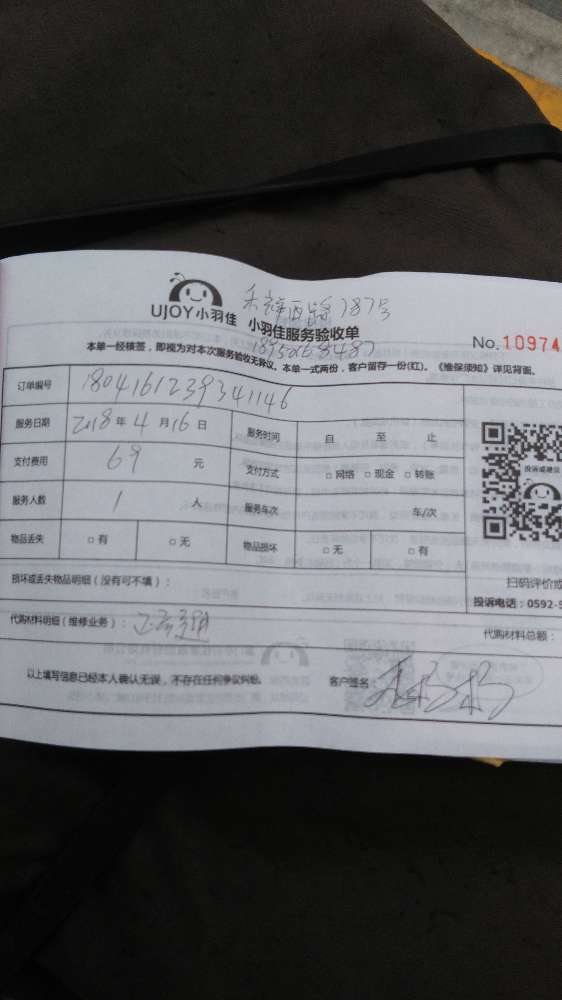 UJOY小羽佳 小羽佳服务验收单
187号
No.10974
本单一经核签，即视为对本次服务验收无异议。本单一式两份，客户留存一份(红)。《维保须知》详见背面。
订单编号 1804161239341146
服务日期 2018年4月16日 服务时间 自 至 止
支付费用 69 元 支付方式 □网络 □现金 □转账
投诉或建议
服务人数 1 人 服务车次 车/次
物品丢失 □有 □无 物品损坏 □无 □有
扫码评价或
损坏或丢失物品明细（没有可不填）：
投诉电话：0592-5
代购材料明细（维修业务）： 代购材料总额：
以上填写信息已经本人确认无误，不存在任何争议纠纷。 客户签名：